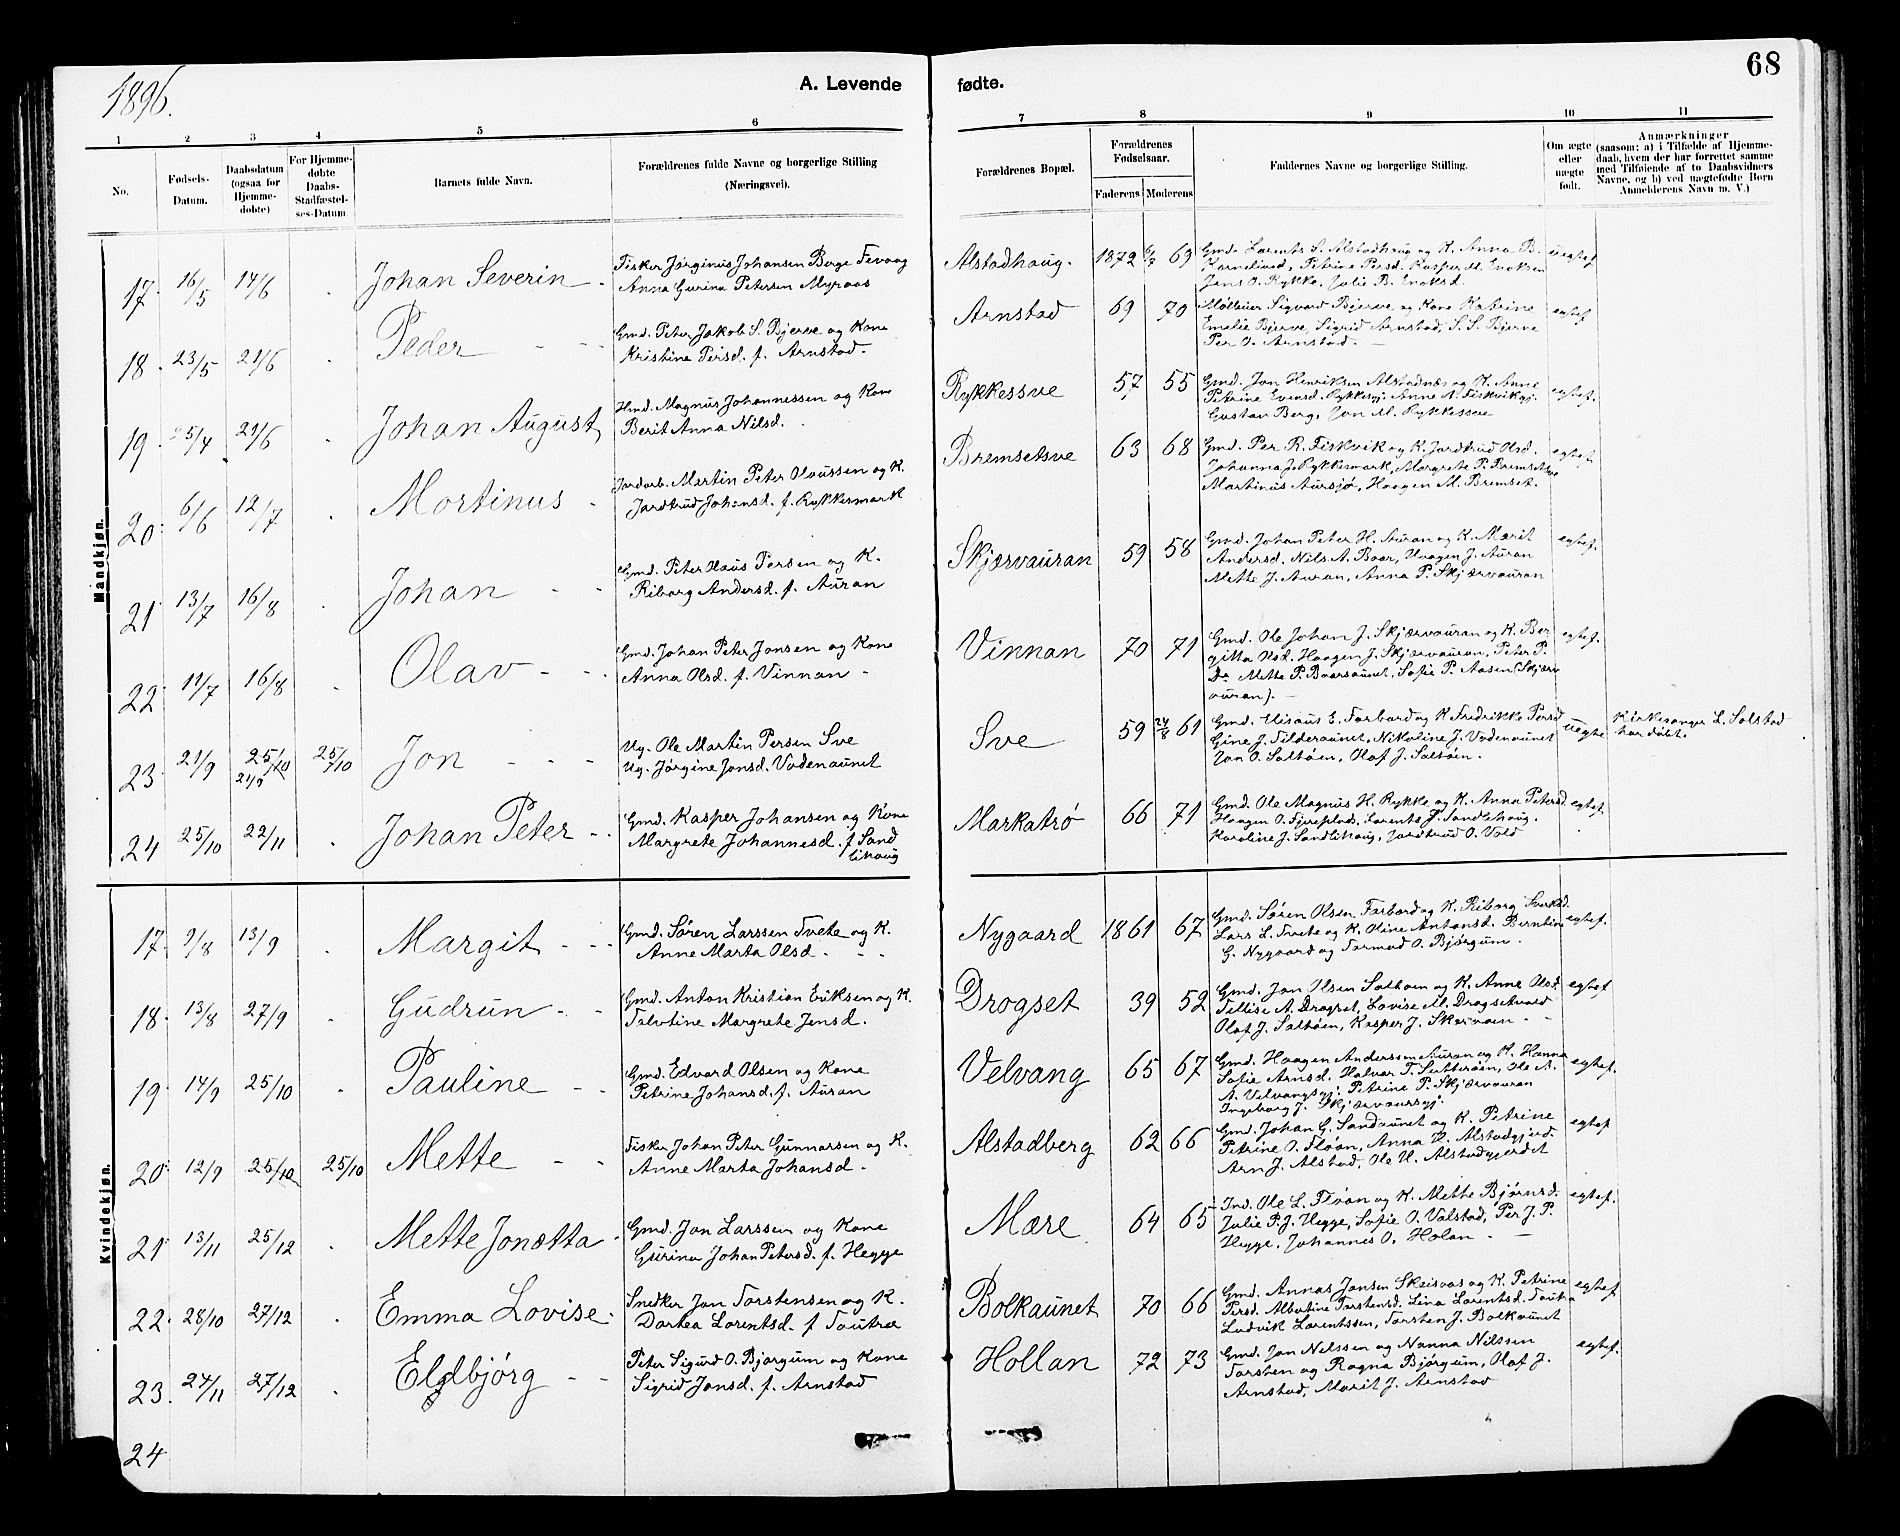 1896.
A. Levende
fødte.
68
1 2 3 4 5 6 7 8 9 10 11
No.
Fødsels-
Datum.
Daabsdatum
(ogsaa for
Hjemme-
døbte)
For Hjemme-
døbte
Daabs-
Stadfæstel-
ses-Datum
Barnets fulde Navn.
Forældrenes fulde Navne og borgerlige Stilling
(Næringsvei).
Forældrenes Bopæl.
Forældrenes
Fødselsaar.
Faderens Moderens
Faddernes Navne og borgerlige Stilling.
Om ægte
eller
uægte
født.
Anmærkninger
(saasom: a) i Tilfælde af Hjemme-
daab, hvem der har forrettet samme
med Tilføiende af to Daabsvidners
Navne, og b) ved uægtefødte Børn
Anmelderens Navn m. V.)
Mandkjøn.
17. 16/5 14/6 . Johan Severin - Fisker Jørginus Johansen Berge Tevaag
Anna Gurina Petersen Myraas
Alstadhaug. 1872 69 Gmd. Larents S. Alstadhaug og K. Anna B. uegtef
Korneliusd, Petrine Persd. Kasper M. Enoksen
Jens O. Rykke, Julie B. Enoksd.
18. 23/5 21/6 . Peder - - - Gmd. Peter Jakob S. Bjerve og Kone
Kristine Persd. f. Arnstad.
Arnstad 69 70 Møbleier Sigvard Bjerve og Kone Katrine egtef
Emelie Bjerve, Sigrid Arnstad, S. S. Bjerve
Per O. Arnstad. -
19. 25/4 21/6 . Johan August Hmd. Magnus Johannessen og Kone
Berit Anna Nilsd.
Rykkessve 57 55 Gmd. Jon Henriksen Alstadnæs og K. Anne egtef.
Petrine Evensd. Rykkesgj. Anne N. Fiskvikgj.
Gustav Berg, Jon M. Rykkessve
20. 6/6 12/7 . Mortinus - Jordarb. Martin Peter Olaussen og K.
Jardtrud Johansd. f. Rykkesmark
Bremsetsve 63 68 Gmd. Per R. Fiskvik og K. Jardtrud Olsd. egtef.
Johanna J. Rykkesmark, Margrete P. Bremsetsve
Martinus Aursjø, Haagen M. Bremset.
21 13/7 16/8 . Johan - - Gmd. Peter Olaus Persen og K.
Riborg Andersd. f. Auran
Skjærvauran 59 58 Gmd. Johan Peter H. Auran og K. Marit egtef.
Andersd. Nils A. Baar, Haagen J. Auran
Mette J. Auran, Anna P. Skjærvauran
22 11/7 16/8 . Olav - - Gmd. Johan Peter Jonsen og Kone
Anna Olsd. f. Vinnan -
Vinnan 70 71 Gmd. Ole Johan J. Skjærvauran og K. Ber egtef.
gitta Olsd. Haagen J. Skjærvauran, Peter P.
Do Mette P. Baarsaunet, Sofie P. Aasen (Skjærv
auran). -
23 21/9 25/10 21/9 25/10 Jon - - - Ug. Ole Martin Persen Sve
Ug. Jørgine Jonsd. Vodenaunet
Sve 59 24/8 61 Gmd. Elisæus E. Forbord og K Fredrikke Persd uegte Kirkesanger L. Salstad
Gine J. Tilderaunet, Nikoline J. Vodenaunet har døbt.
Jon O. Saltøen, Olaf J. Saltøen.
24 25/10 22/11 . Johan Peter - - Gmd. Kasper Johansen og Kone
Margrete Johannesd. f. Sand
likaug
Markatrø 66 71 Gmd. Ole Magnus H. Rykke og K. Anna Petersd egtef.
Haagen O. Fjireplads, Larents J. Sandlikaug.
Karoline J. Sandlikaug, Jardtrud O. Vold
Kvindekjøn.
17. 9/8 13/9 . Margit - - - Gmd. Søren Larssen Tvete og K.
Anne Marta Olsd. - - -
Nygaard 1861 67 Gmd. Søren Olsen Forbord og K. Riborg Sivertsd. egtef.
Lars L. Tvete og K. Oline Antonsd. Berntine
G. Nygaard og Tormod O. Bjørgum.
18. 13/8 27/9 . Gudrun - - Gmd. Anton Kristian Eriksen og K.
Talvtine Margrete Jensd.
Drogset 39 52 Gmd. Jon Olsen Salthom og K. Anne Olsd. egtef
Tellise A. Drogset, Lovise M. Drogsetvald
Olaf J. Saltøen, Kasper J. Skervaen - -
19. 14/9 25/10 . Pauline - - Gmd. Edvard Olsen og Kone
Petrine Johansd. f. Auran
Velvang 65 67 Gmd. Haagen Anderssen Auran og K. Hanna egtef.
Sofie Arnsd. Halvar T. Sutterøin, Ole A.
A. Velvangsgj. Petrine P. Skjærvauran
Ingeborg J. Skjærvaursgj.
20. 12/9 25/10 25/10 Mette - - Fisker Johan Peter Gunnarsen og K.
Anne Marta Johansd. -
Alstadberg 62 66 Gmd. Johan G. Sandaunet og K. Petrine egtef
Petrine O. Fløan, Anna H. Alstadgjerd.
Arn J. Alstad, Ole H. Alstadgjerdet
21. 13/11 25/12 . Mette Jonetta - Gmd. Jon Larssen og Kone
Gurina Johan Petersd. f. Hegge
Mære 64 65 Ind. Ole L. Fløan og K. Mette Bjørnsd. egtef.
Julie P. J. Hegge, Sofie O. Valstad, Per J. P.
Hegge, Johannes O. Holan. - -
22. 28/10 27/12 . Emma Lovise. Snedker Jon Torstensen og K.
Dortea Lorentsd. f Tautra
Bolkaunet 70 66 Gmd. Annas Jonsen Skeisvas og K. Petrine egtef
Persd. Albertine Torstensd. Lina Lorentsd. Tautra
Ludvik Lorentssen, Torsten J. Bolkaunet
23. 24/11 27/12 . Eldbjørg - - Peter Sigurd O. Bjørgum og Kone
Sigrid Jonsd. f. Arnstad
Hollan 72 73 Gmd. Jon Nilssen og Nanna Nilssen egtef.
Torsten og Ragna Bjørgum, Olaf J.
Arnstad, Marit J. Arnstad
24